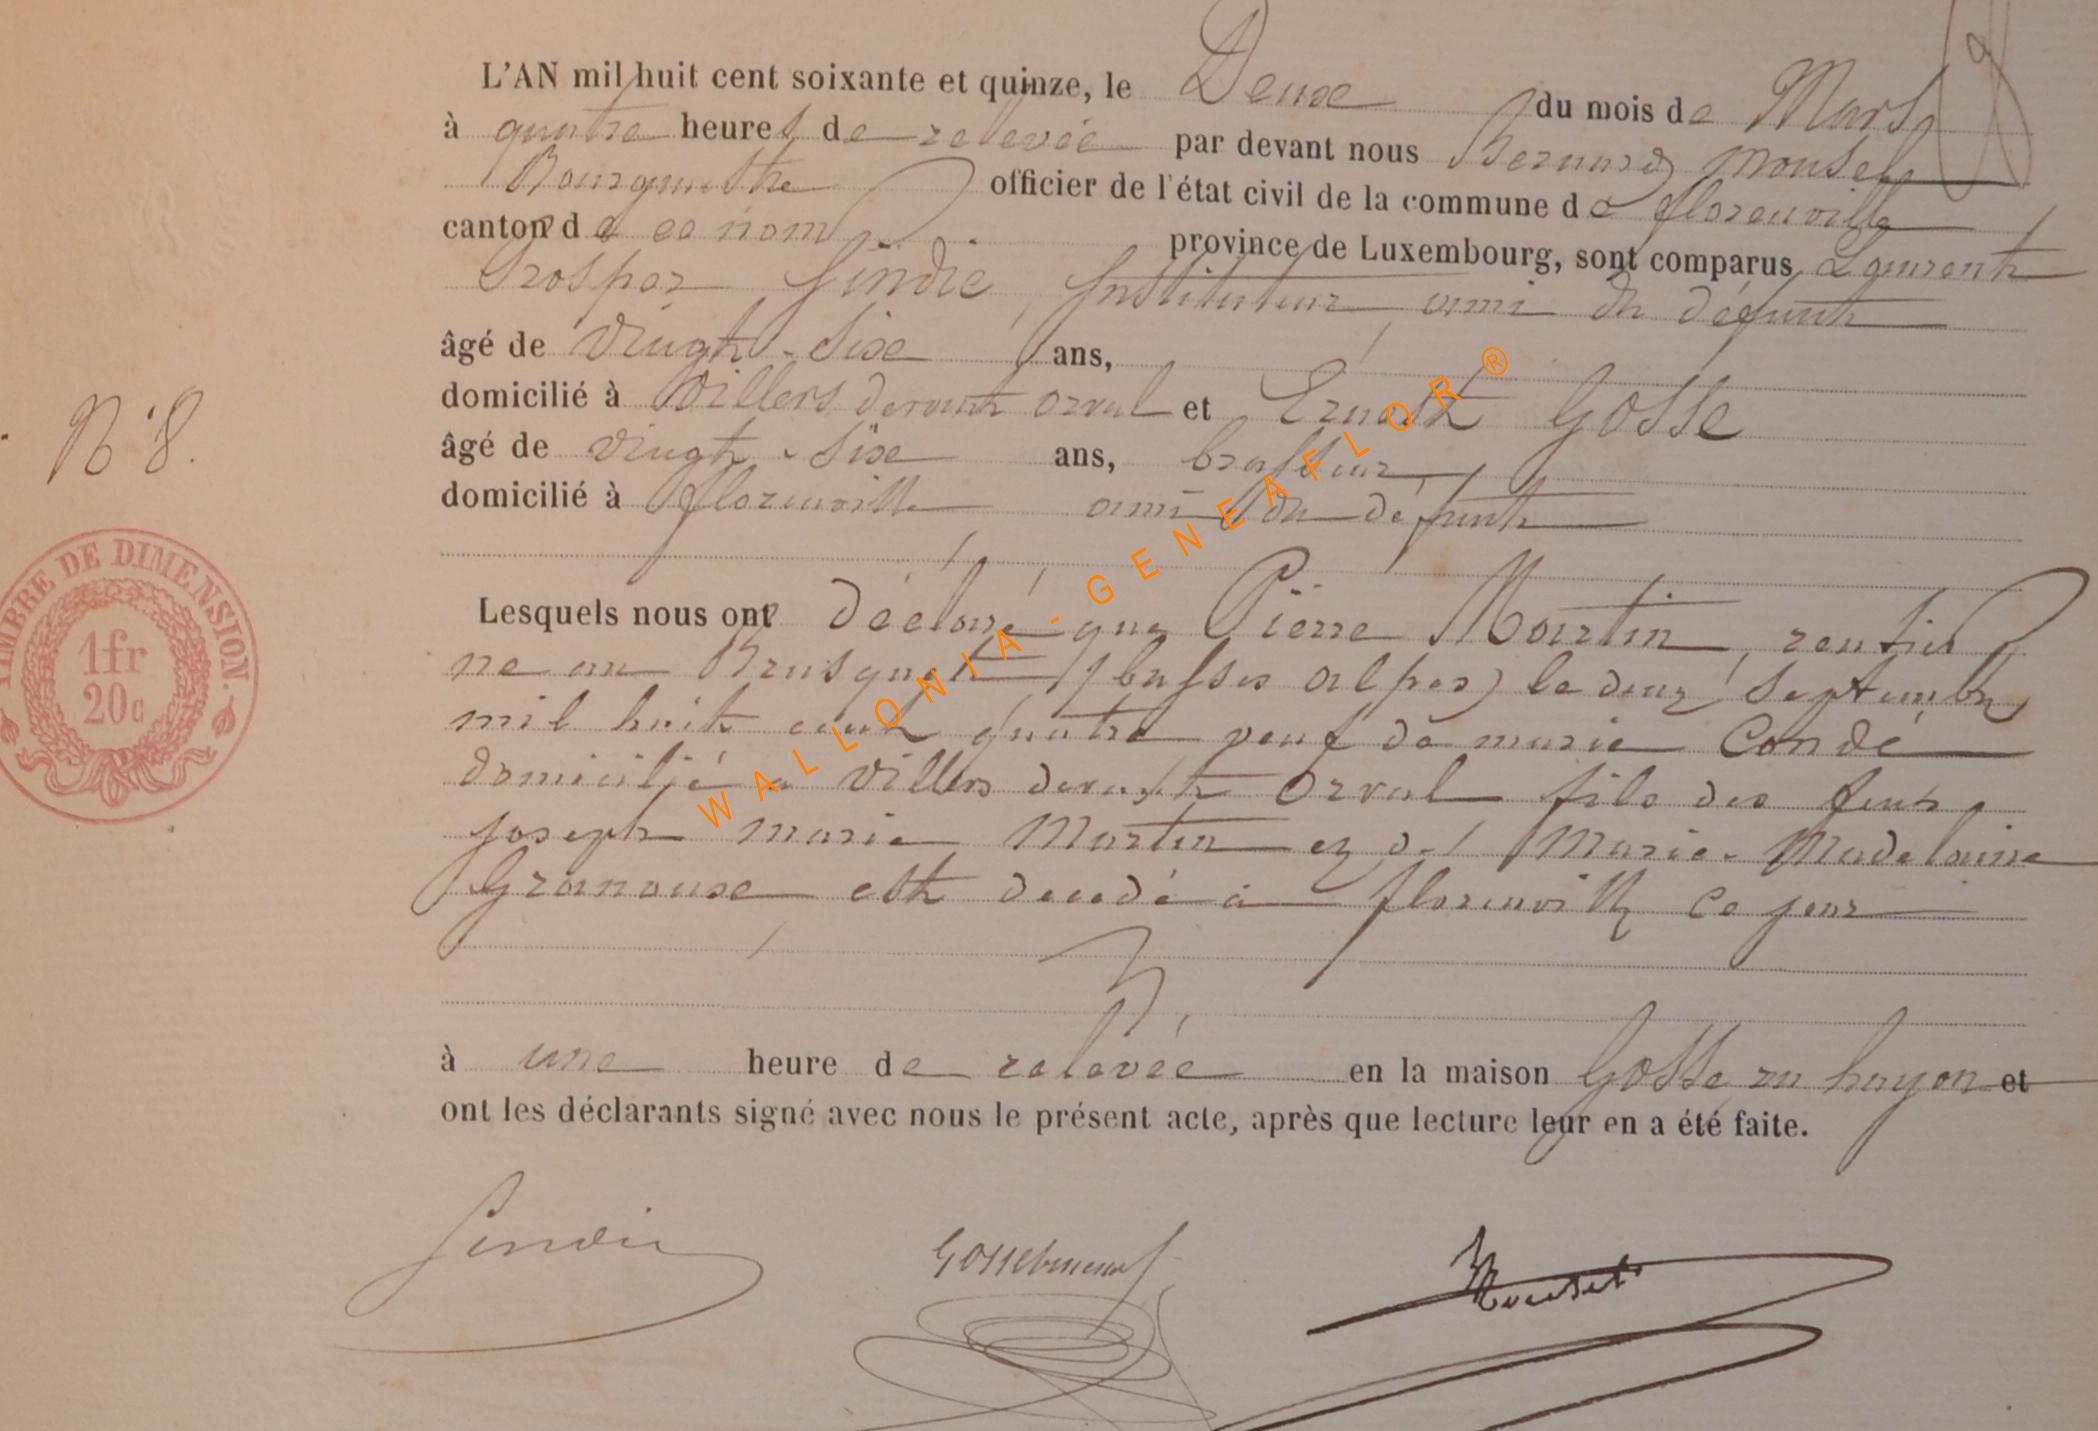 L'AN mil huit cent soixante et quinze, le Deux du mois de Mars
à quatre heures de relevée par devant nous Bernard Mousel
Bourgmestre officier de l'état civil de la commune de florenville
canton de ce nom province de Luxembourg, sont comparus Laurent
Prosper Sindic, Instituteur, ami du défunt
âgé de vingt-six ans,
domicilié à Villers devant Orval et Ernest Gosse
âgé de vingt-six ans, brasseur,
domicilié à florenville ami du défunt
Lesquels nous ont déclaré que Pierre Martin, rentier
né au Brusquet (basses alpes) le deux Septembre
mil huit cent quatre veuf de marie Condé
domicilié a Villers devant Orval fils des feux
joseph marie Martin et de Marie-Madelaine
est decedé a florenville ce jour
à une heure de relevée en la maison Gosse et
ont les déclarants signé avec nous le présent acte, après que lecture leur en a été faite.
N° 8.
TIMBRE DE DIMENSION.
1fr
20c
WALLONIA-GENEAFLOR ®